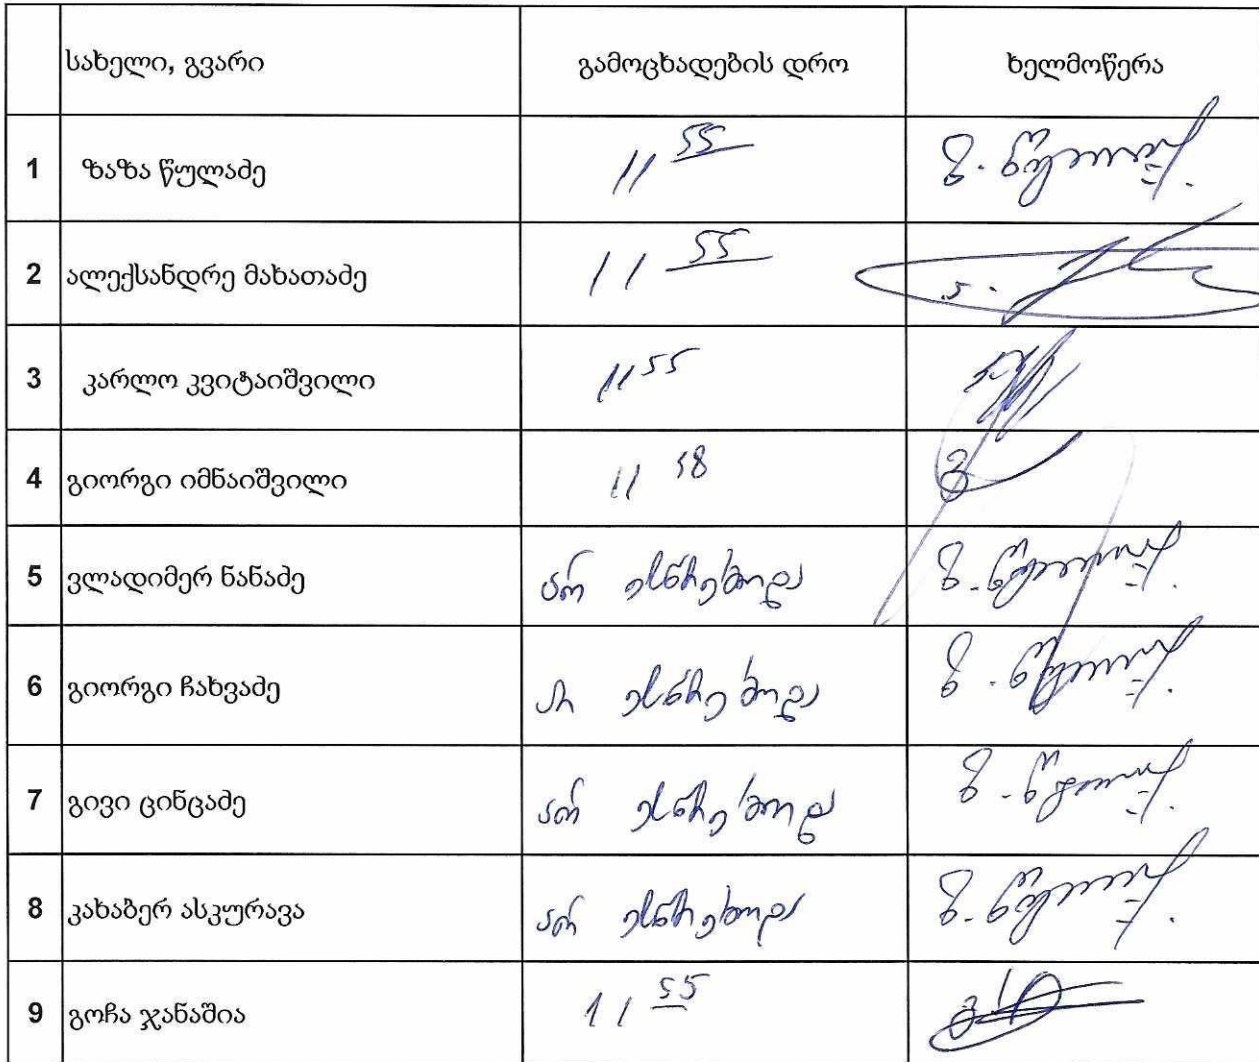 სახელი, გვარი გამოცხადების დრო ხელმოწერა
1 ზაზა წულაძე 11 55 ზ. წულაძე
2 ალექსანდრე მახათაძე 11 55
3 კარლო კვიტაიშვილი 11 55
4 გიორგი იმნაიშვილი 11 58
5 ვლადიმერ ნანაძე არ ესწრებოდა
6 გიორგი ჩახვაძე არ ესწრებოდა
7 გივი ცინცაძე არ ესწრებოდა
8 კახაბერ ასკურავა არ ესწრებოდა
9 გოჩა ჯანაშია 11 55